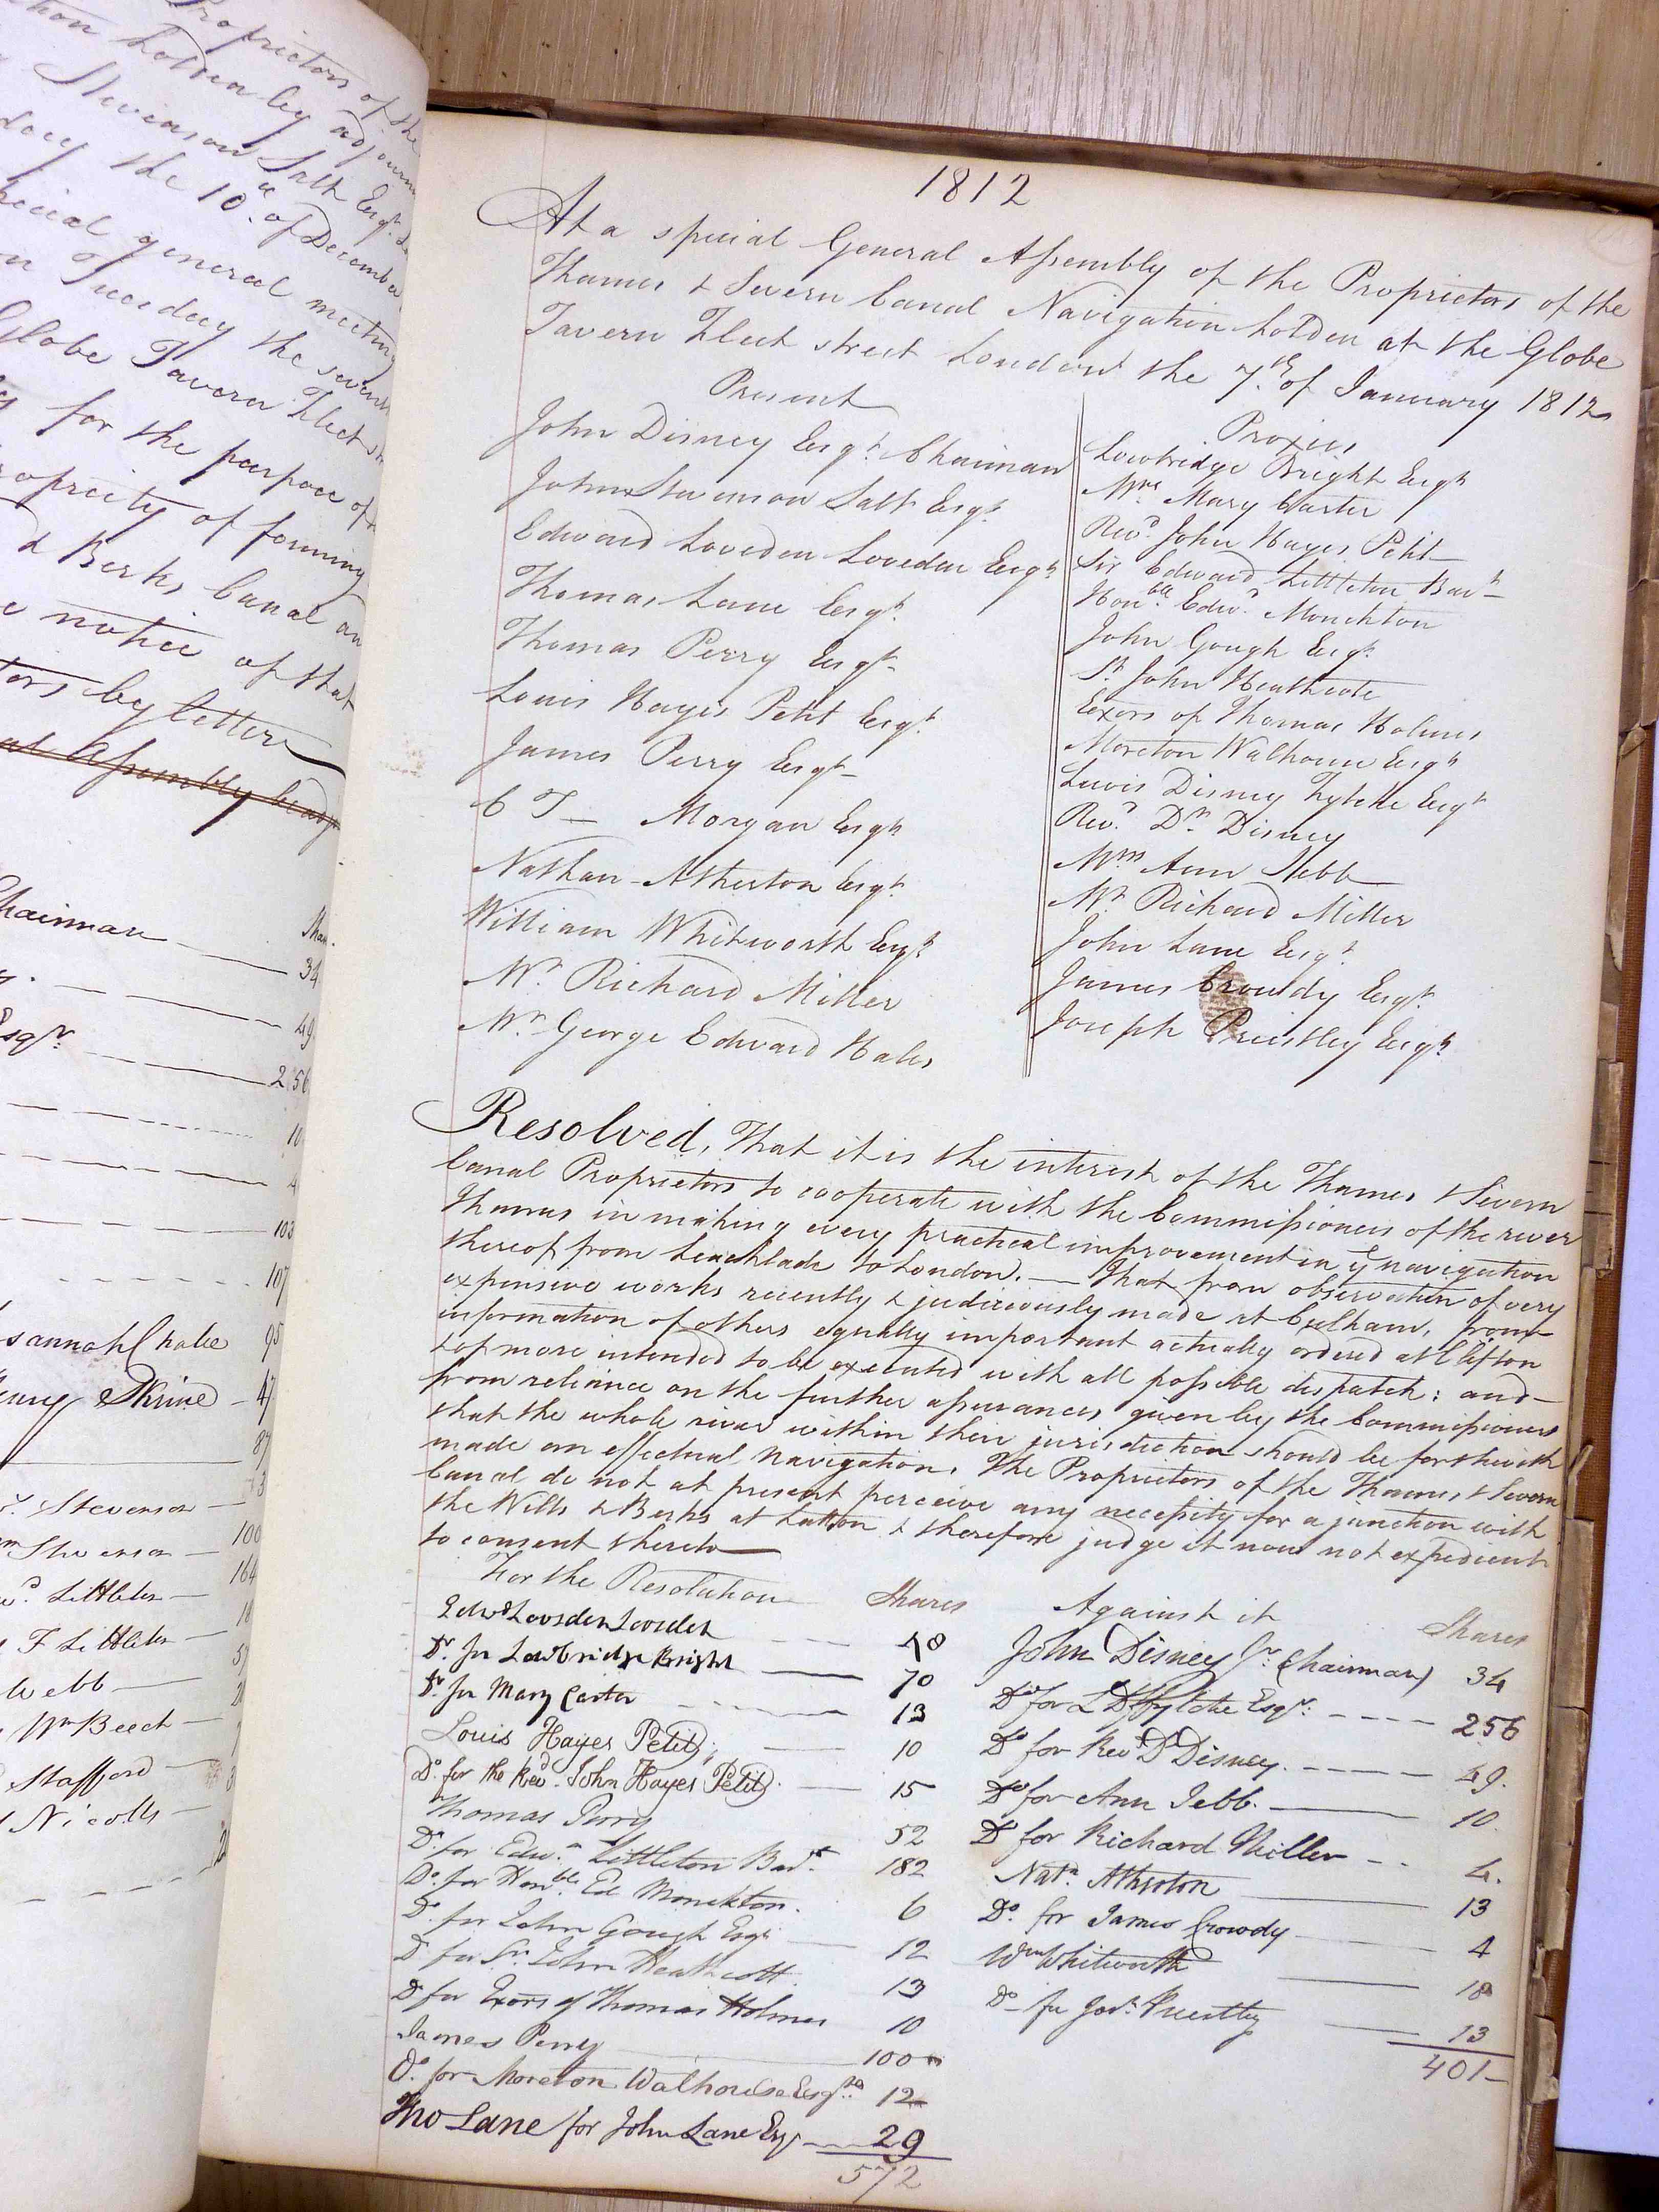 Proprietors of the
holden by adjourn
Stevenson Salt Esqr.
the 10th of December
general meeting
Tuesday the seventh
Globe Tavern Fleet St
for the purpose of
propriety of forming
& Berks Canal an
notice of that
tors by letter
al Assembly
Chairman
Shar.
34
49
Esqr.
256
10
4
103
107
95
Skrine 47
87
3
Stevenson
100
164
Littleton
18
F Littleton
Webb
Wm Beech
Stafford
Nicolls
1812
At a special General Assembly of the Proprietors of the
Thames & Severn Canal Navigation holden at the Globe
Tavern Fleet street London the 7th of January 1812
Present
John Disney Esqr. Chairman
John Stevenson Salt Esqr.
Edward Loveden Loveden Esqr
Thomas Lane Esqr.
Thomas Perry Esqr
Louis Hayes Petit Esqr.
James Perry Esqr
C T — Morgan Esqr
Nathan Atherton Esqr.
William Whitworth Esqr
Mr Richard Miller
Mr George Edward Hales
Proxies
Lowbridge Bright Esqr
Mrs Mary Carter
Revd. John Hayes Petit
Sir Edward Littleton Bart
Honble. Edwd. Monckton
John Gough Esqr.
Sr. John Heathcote
Exors of Thomas Holmes
Moreton Walhouse Esqr
Lewis Disney Fytche Esqr
Revd. Dr. Disney
Mrs Ann Jebb
Mr Richard Miller
John Lane Esqr.
James Crowdy Esqr.
Joseph Priestley Esqr.
Resolved, That it is the interest of the Thames & Severn
Canal Proprietors to cooperate with the Commissioners of the river
Thames in making every practical improvement in ye navigation
thereof from Leachlade to London. — That from observation of very
expensive works recently & judiciously made at Culham, from
information of others equally important actually ordered at Clifton
& of more intended to be executed with all possible dispatch: and
from reliance on the further assurances given by the Commissioners
that the whole river within their jurisdiction should be forthwith
made an effectual Navigation. The Proprietors of the Thames & Severn
Canal do not at present perceive any necessity for a junction with
the Wilts & Berks at Latton & therefore judge it now not expedient
to consent thereto
For the Resolution Shares
Edwd Loveden Loveden 48
Do. for Lowbridge Bright 70
Do. for Mary Carter 13
Louis Hayes Petit; 10
Do. for the Revd. John Hayes Petit. 15
Thomas Perry 52
Do for Edwd. Littleton Bart. 182
Do. for Honble. Ed Monckton. 6
Do. for John Gough Esqr 12
Do for Sr. John Heathcott 13
Do for Exors of Thomas Holmes 10
James Perry 100
Do. for Moreton Walhouse Esqr. 12
Tho Lane for John Lane Esqr 29
572
Against it Shares
John Disney Jr. (Chairman) 34
Do for L D Fytche Esqr: 256
Do for Revd Dr Disney. 49.
Do for Ann Jebb. 10.
Do for Richard Miller 4.
Natn. Atherton 13
Do. for James Crowdy 4
Wm Whitworth 18
Do for Josh. Priestley 13
401